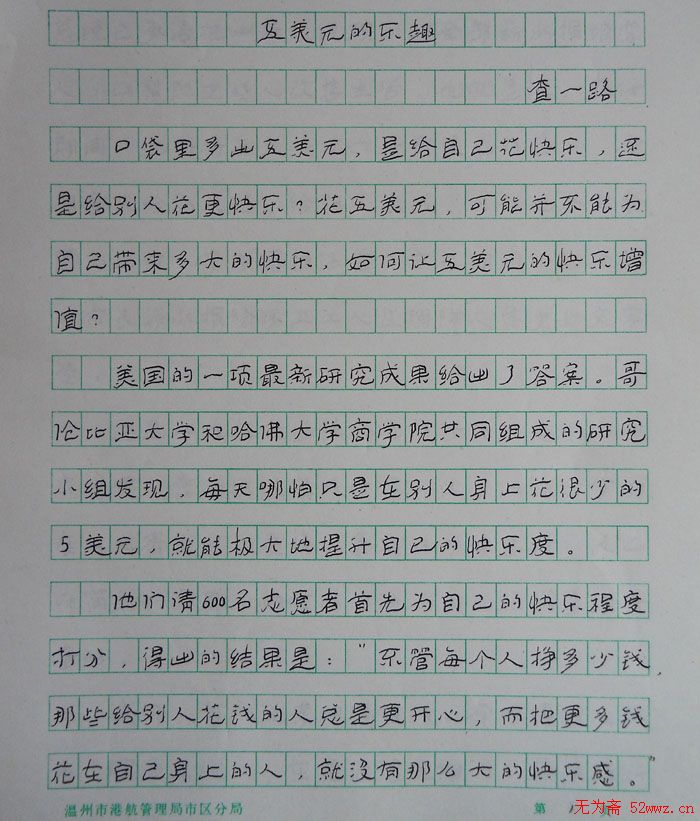 五美元的乐趣
查一路
口袋里多出五美元，是给自己花快乐，还
是给别人花更快乐？花五美元，可能并不能为
自己带来多大的快乐，如何让五美元的快乐增
值？
美国的一项最新研究成果给出了答案。哥
伦比亚大学和哈佛大学商学院共同组成的研究
小组发现，每天哪怕只是在别人身上花很少的
5美元，就能极大地提升自己的快乐度。
他们请600名志愿者首先为自己的快乐程度
打分，得出的结果是："不管每个人挣多少钱，
那些给别人花钱的人总是更开心，而把更多钱
花在自己身上的人，就没有那么大的快乐感。"
温州市港航管理局市区分局 第
无为斋 52wwz.cn